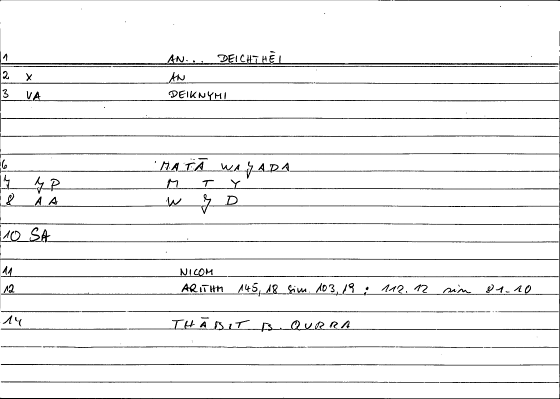 1 AN... DEICHTHĒI
2 X AN
3 VA DEIKNYMI
6 MATĀ WAǦADA
7 ǦP M T Y
8 AA W Ǧ D
10 SA
11 NICOM
12 ARITHM 145,18 sim. 103,19 ; 112.12 sim 81.10
14 THĀBIT B. QURRA